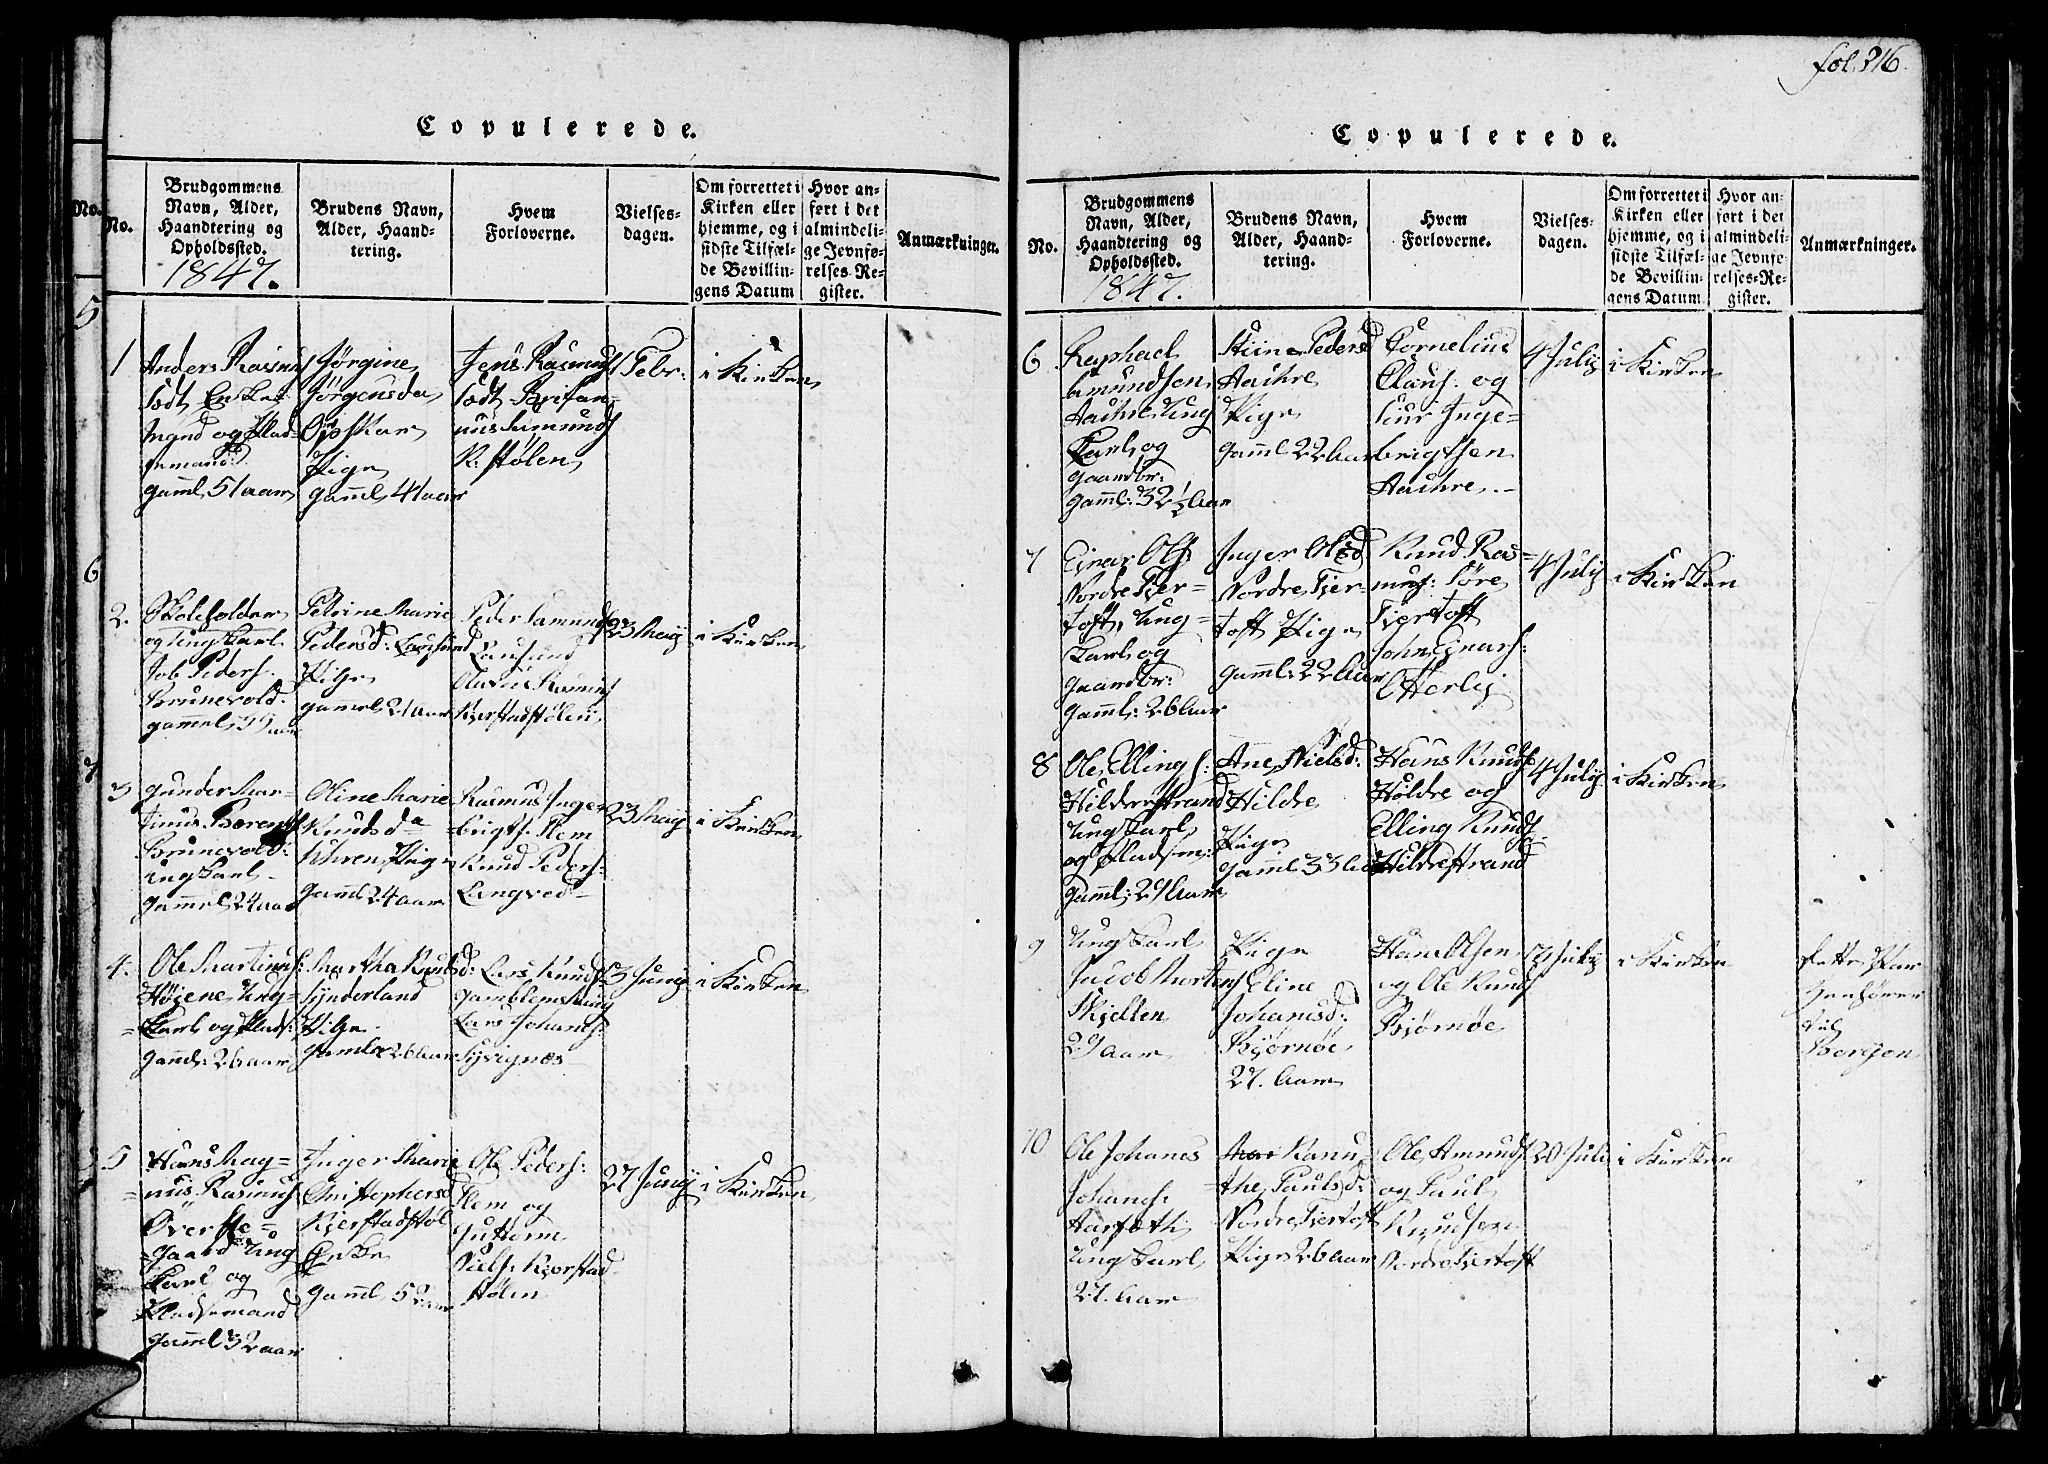 fol. 216.
Copulerede.
No.
Brudgommens
Navn, Alder,
Haandtering og
Opholdssted.
1847.
Brudens Navn,
Alder, Haand-
tering.
Hvem
Forloverne.
Vielses-
dagen.
Om forrettet i
Kirken eller
hjemme, og i
sidste Tilfæl-
de Bevillin-
gens Datum
Hvor an-
ført i det
almindeli-
ge Jevnfø-
relses-Re-
gister.
Anmærkninger.
1
Anders Rasmus
Sædt Enke
mand og Plad-
semand
gaml 51 aar
Jørgine
Jørgensda
Opskar
Pige
gaml 41 aar
Jens Rasmus
Sædt
K: stølen
1 Febr:
i Kirken
2.
Skoleholder
og Ungkarl
Job Peders.
Brunevold
gammel 39 aar
Petrine Marie
Pedersd:
Pige
gammel 21 aar
Peder
Rasmus
Kjerstadstølen
23 Maij
i Kirken
3
Gunder Mar-
tinus Berents
Brunevold:
ungkarl
gammel 24 aar
Oline Marie
Knudsda
Uhren, Pige
gaml 24 aar
Rasmus Inge-
brigts. Flem
Knud Peders:
Longved
23 Maij
i Kirken
4.
Ole Martinus:
Ung-
karl og Plads:
gaml: 26 aar
Martha Knudsd:
Synderland
Pige
gamle 26 aar
Lars Knuds
Lars Johans:
13 Junij
i Kirken
5
Hans Mag-
nus Rasmus
Øverste-
gaard Ung
karl og
Pladsemand
gaml 32 aar
Inger Marie
Christophersd
Kjerstadstøl
Enke
gaml 52 aar
Ole Peders:
Flem og
Guttorm
Niels: Kjerstad
stølen
27 Junij
i Kirken
Copulerede.
No.
Brudgommens
Navn, Alder,
Haandtering og
Opholdssted.
1847.
Brudens Navn,
Alder, Haand-
tering.
Hvem
Forloverne.
Vielses-
dagen.
Om forrettet i
Kirken eller
hjemme, og i
sidste Tilfæl-
de Bevillin-
gens Datum
Hvor an-
ført i det
almindeli-
ge Jevnfø-
relses-Re-
gister.
Anmærkninger.
6
Raphael
Amundsen
Auhre Ung
Karl og
gaardbr:
gaml: 32 1/2 Aar
Stine Pedersd
Auhre
Pige
gaml 22 Aar
Cornelius
Claus: og
Siur Inge-
brigtsen
Auhre
4 Julij
i Kirken
7
Einar Ols:
Nordre Fjer-
toft, Ung-
karl og
gaardbr:
gaml: 26 Aar
Inger Olsd
Nordre Fjer-
toft Pige
gaml: 22 Aar
Knud Ras-
mus: Søre
Fjertoft
John Einars:
Otterlej
4 Julij
i Kirken
8
Ole Elling s:
Hilderstrand
Ungkarl
og Pladsm:
gaml: 27 Aar
Ane Nielsd:
Hildre
Pige
gaml 33 Aar
Hans Knuds
Hildre og
Elling Knuds
Hildrestrand
4 Julij
i Kirken
9
Ungkarl
Jacob Mortens
Skjelten
27 aar
Pige
Eline
Johanisd:
Bjørnøe
27. Aar
Hans Olsen
og Ole Knuds
Bjørnøe
i Kirken
til
Bergen
10
Ole Johanes
Johans:
Aarseth
Ungkarl
27. Aar
Ranu-
the Paulsd:
Nordre Fjertoft
Pige 26 aar
Ole Amunds
og Paul
Knudsen
Nordre Fjertoft
20 Juli
i Kirken